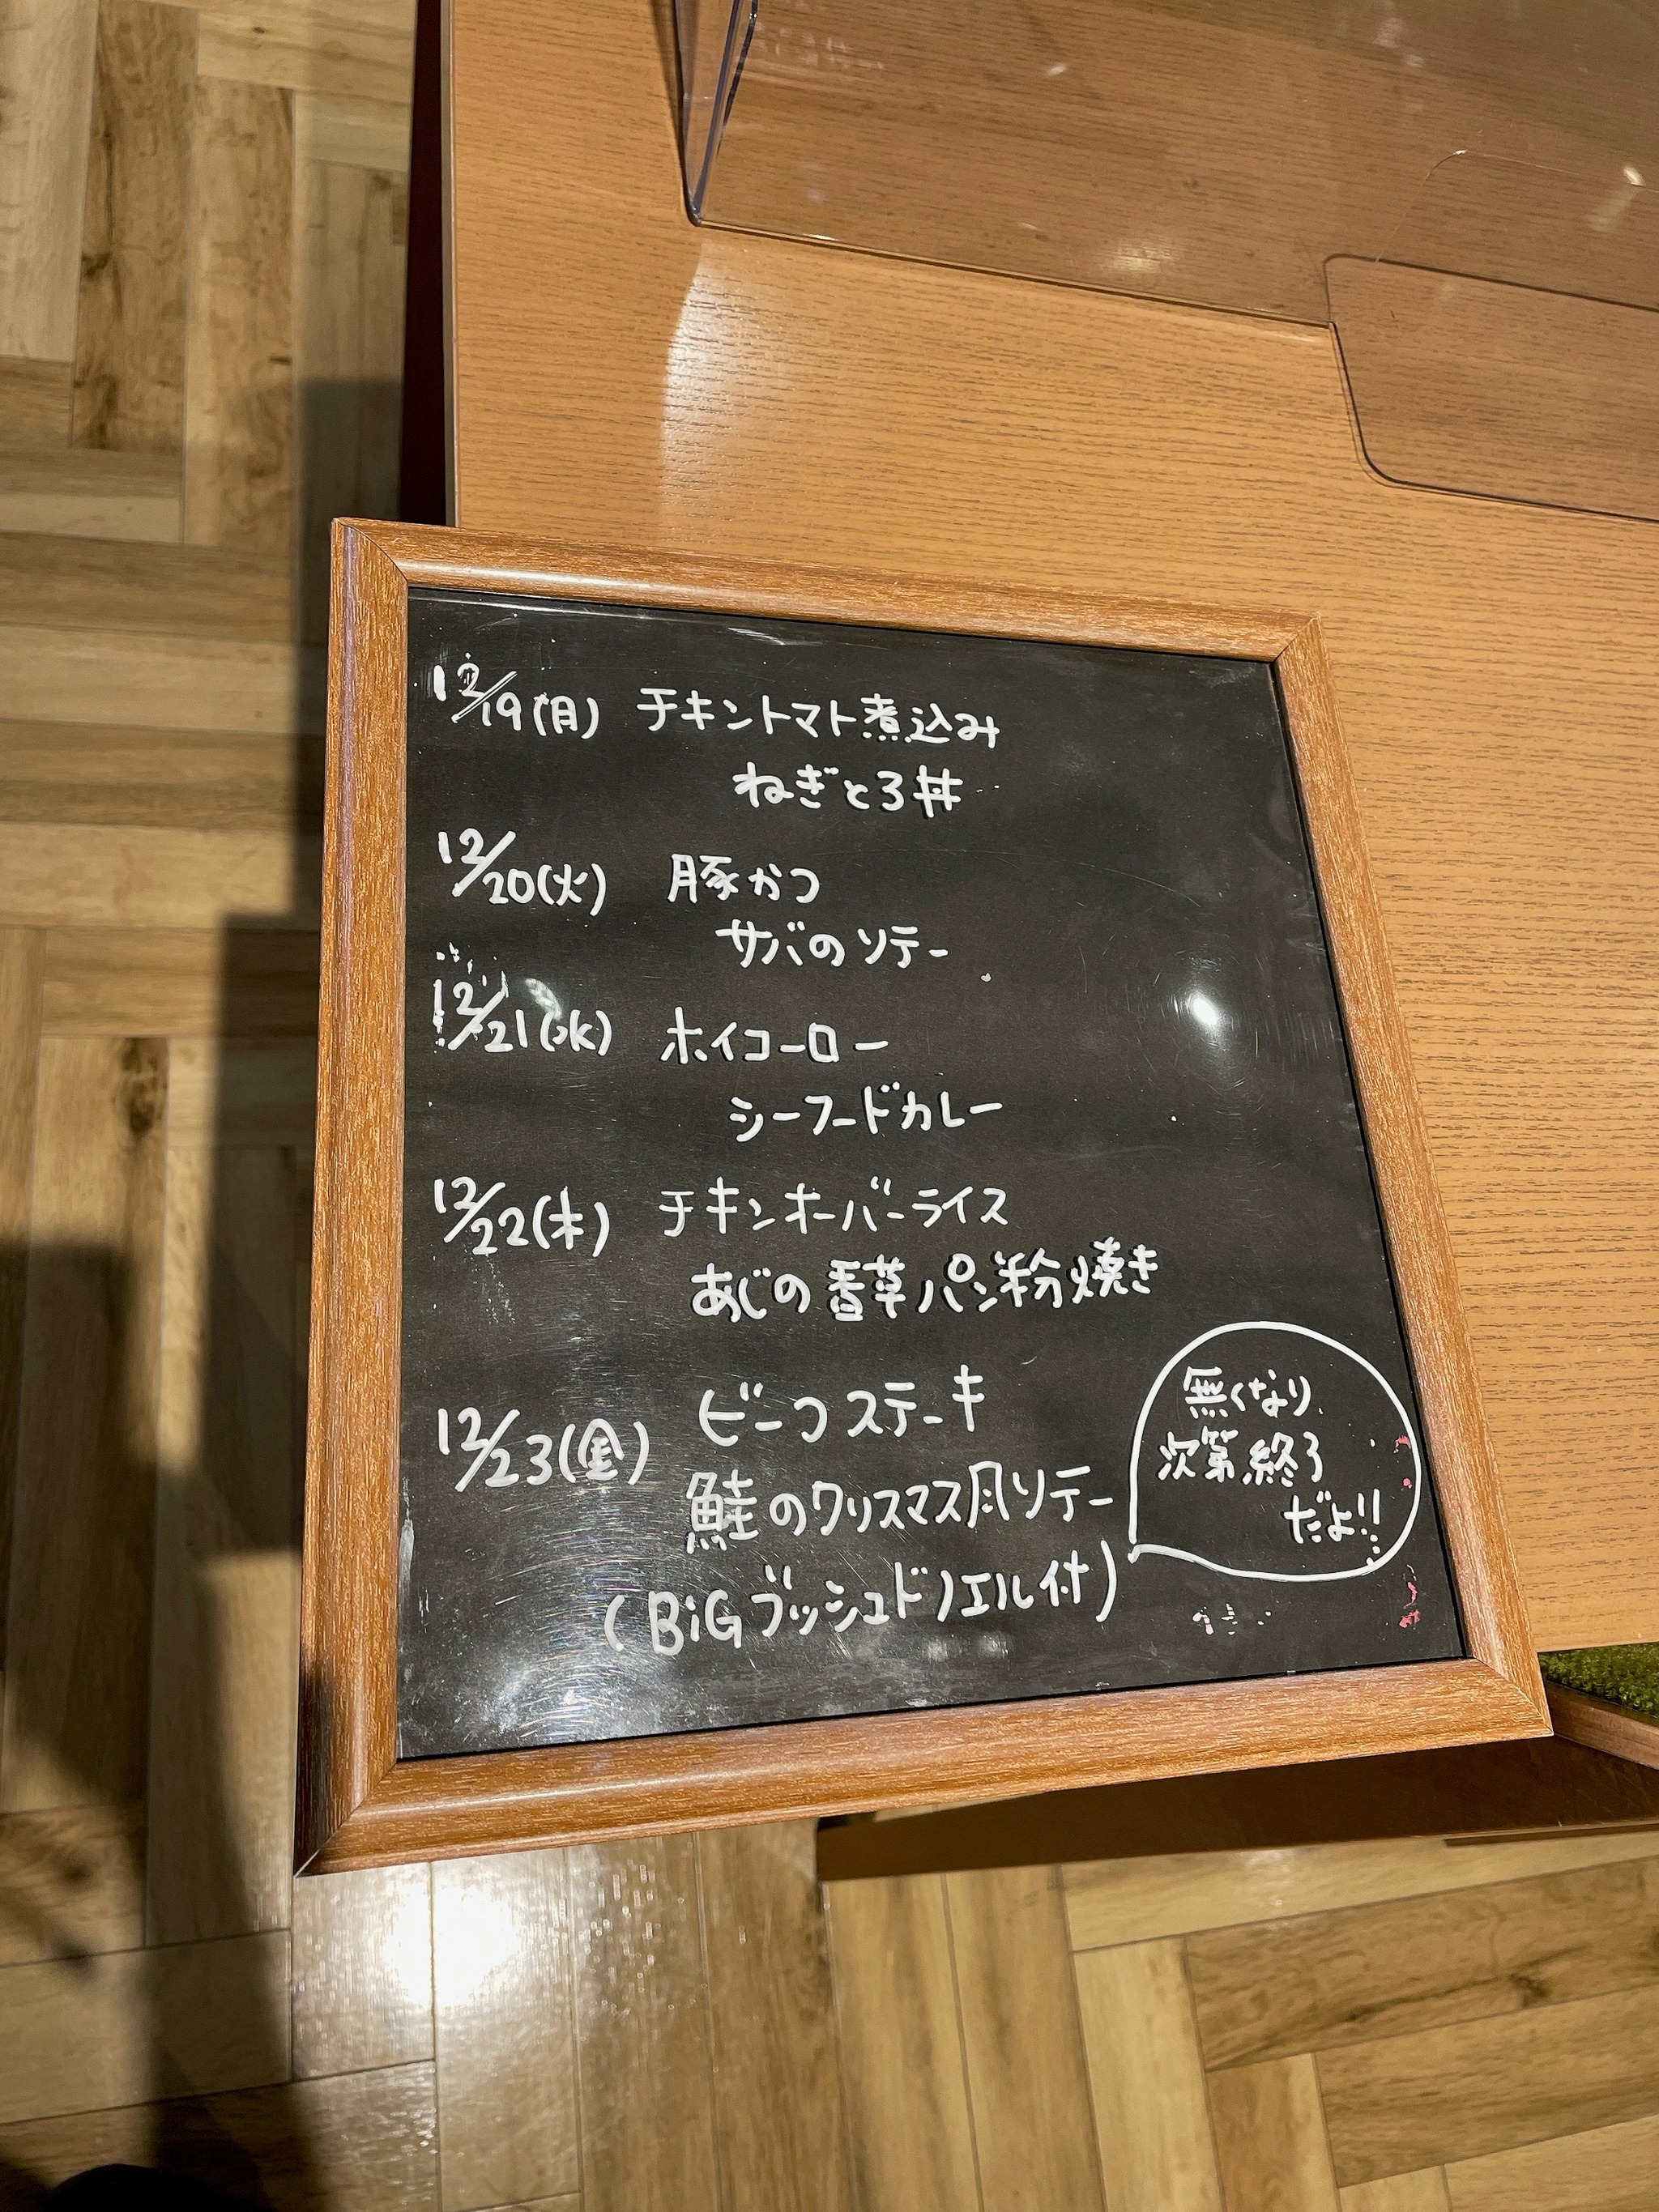 12/19(月) チキントマト煮込み
ねぎとろ丼
12/20(火) 豚かつ
サバのソテー
12/21(水) ホイコーロー
シーフードカレー
12/22(木) チキンオーバーライス
あじの香草パン粉焼き
12/23(金) ビーフステーキ
鮭のクリスマス風ソテー
(BiGブッシュドノエル付)
無くなり
次第終了
だよ!!